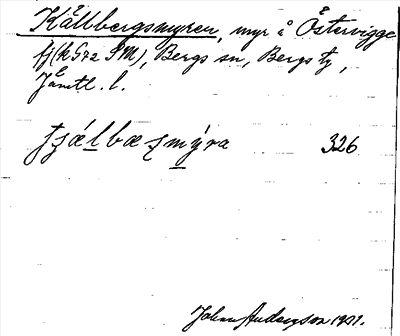 Källbergsmyren, myr å Östervigge
fj (k 572 SM), Bergs sn, Bergs tg,
Jämtl. l.
tʂælbæʂmýra 326
Johan Anderson 1921.